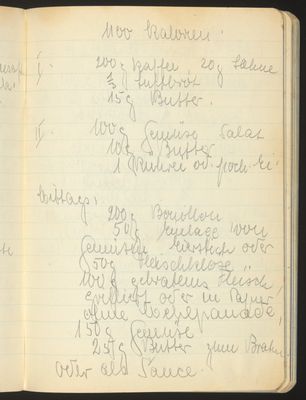 1100 Kalorien.
I. 200g Kaffee 20g Sahne
Luftbrot
15g Butter.
II. 100g Gemüse Salat
10g Butter
1 od. poch. Ei.
Mittags:
200g Bouillon
50g Einlage von
Gemüsen Eierstich oder
50g Fleischklöse
100g gebratenes Fleisch,
gegrillt oder in Papier
ohne
150g Gemüse
25g Butter zum Braten
oder als Sauce.